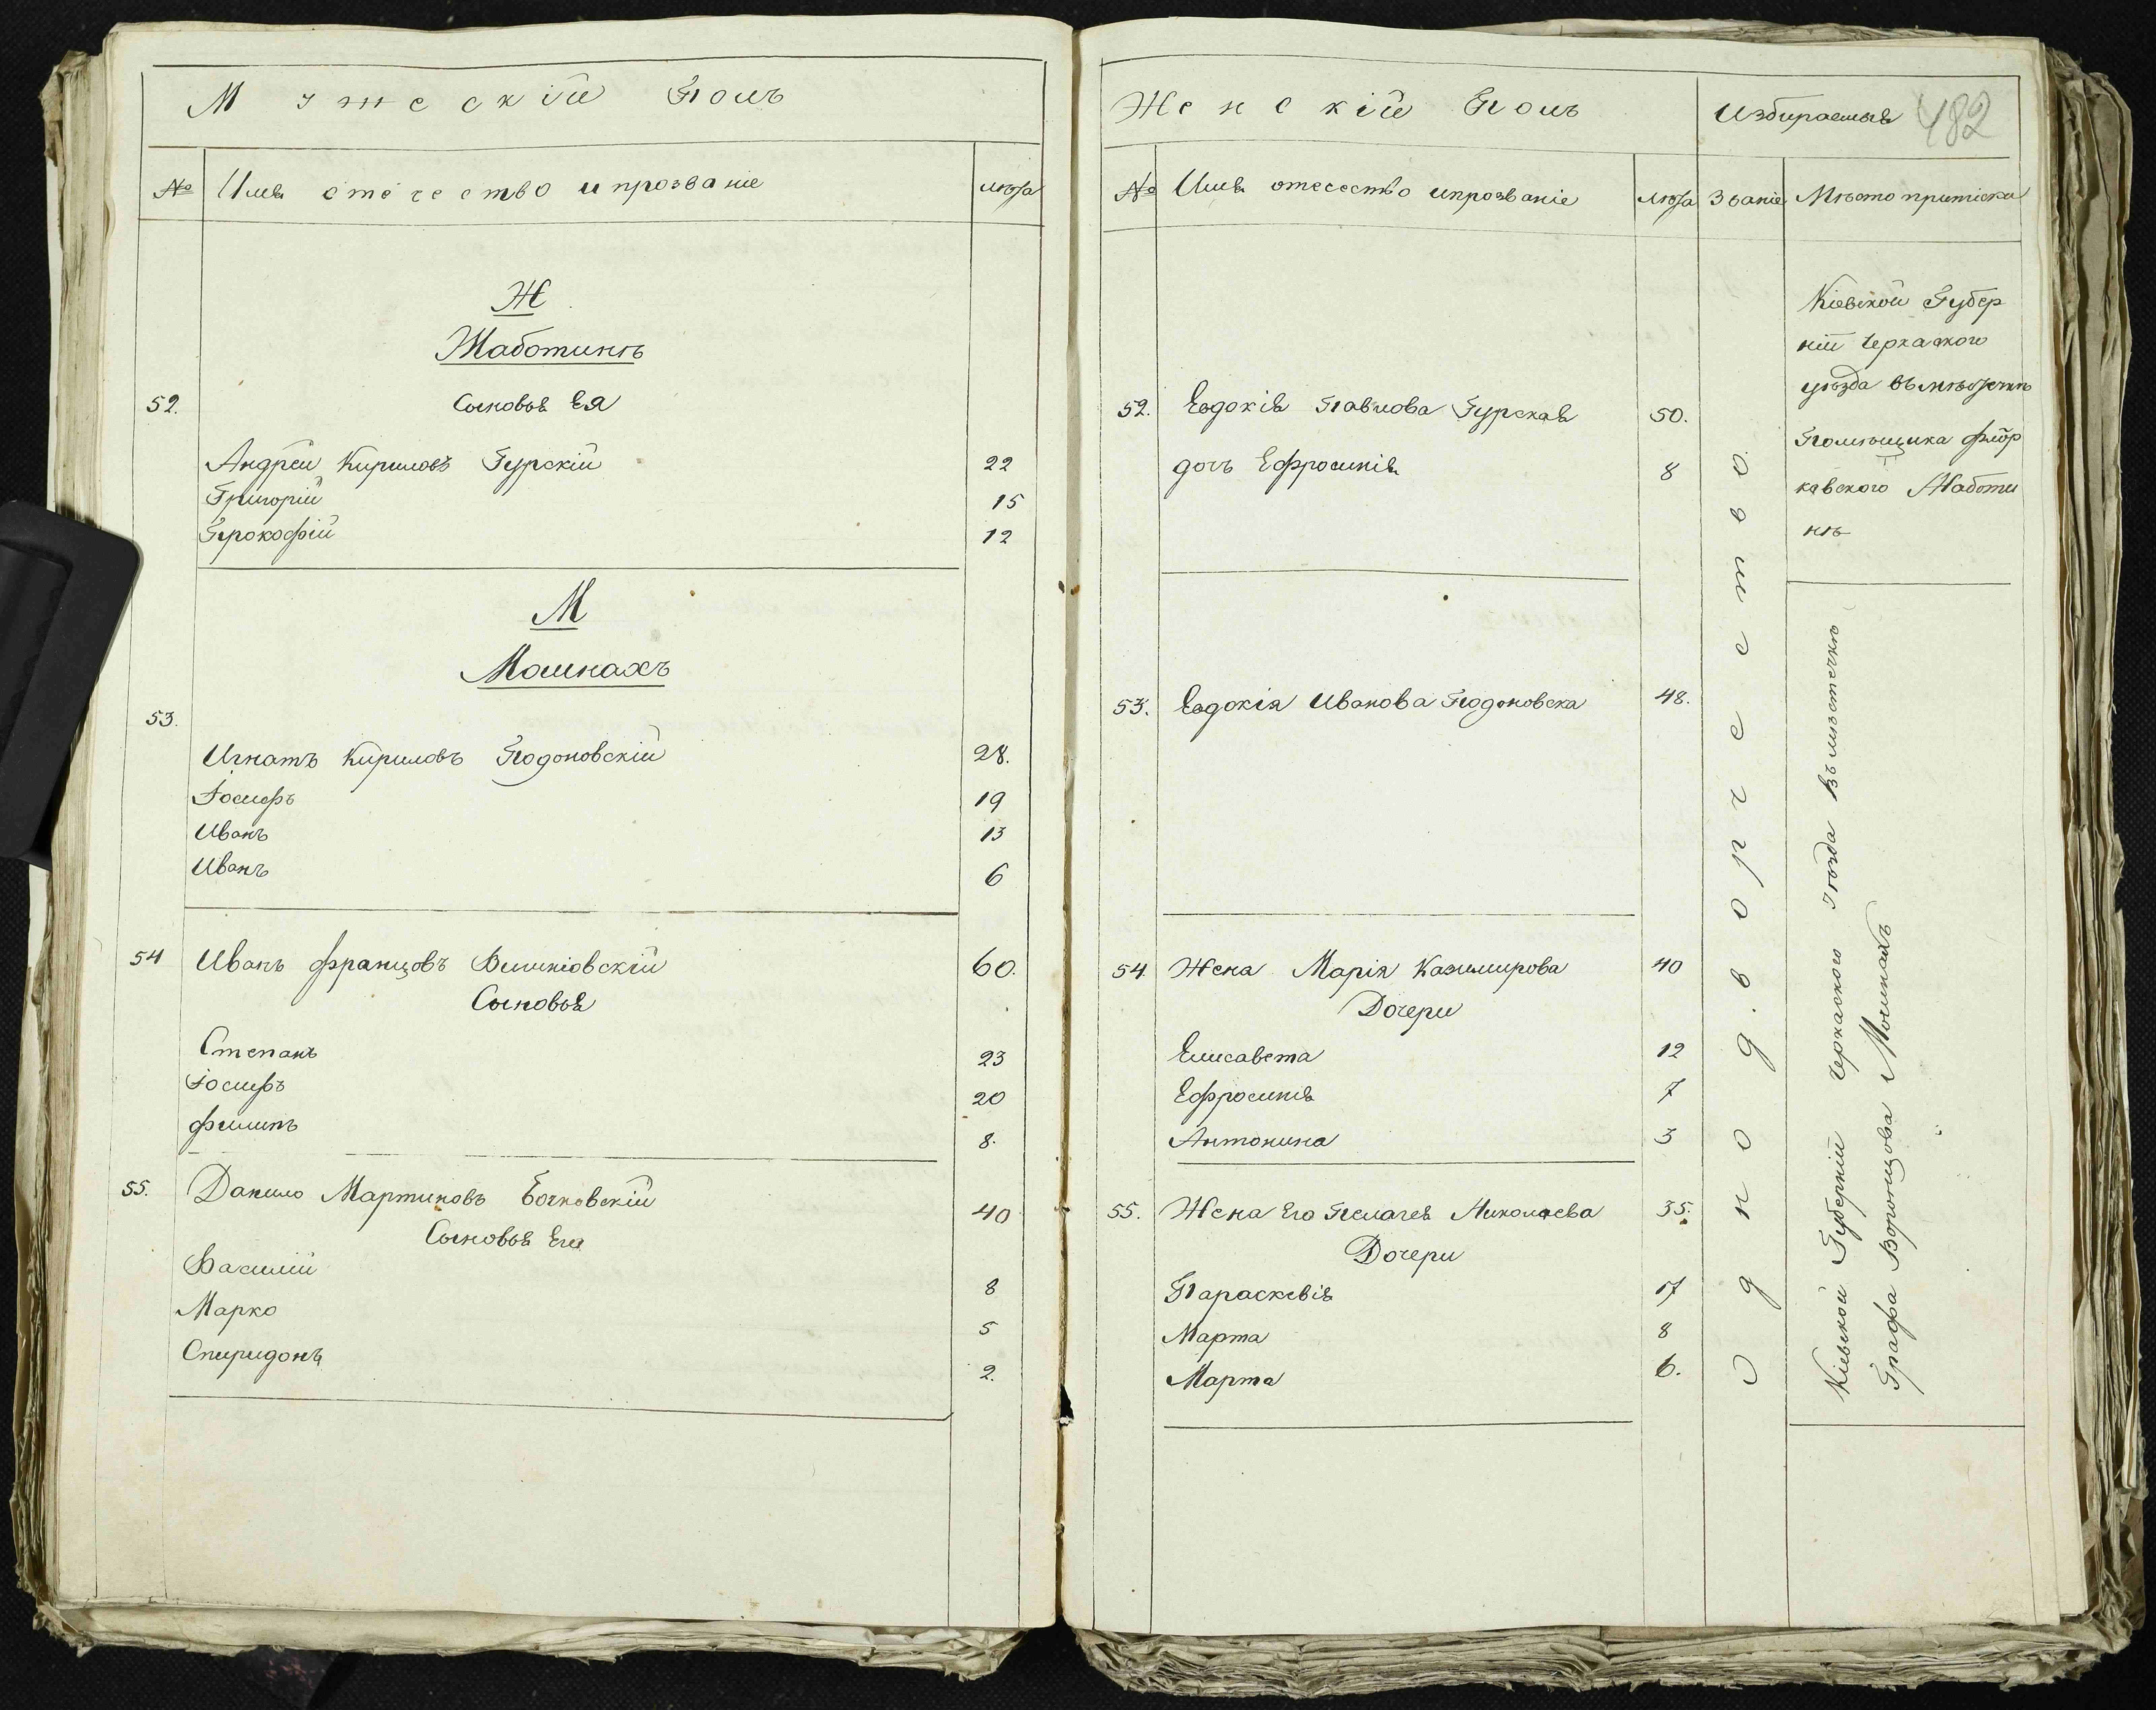 Мужескій Полъ
№ Имя отечество и прозваніе лѣта
Ж
Жаботинѣ
52. Сыновья Ея
Андрей Кириловъ Гурскій 22
Григорій 15
Прокофій 12
М
Мошнахъ
53.
Игнатъ Кириловъ Подоновскій 28.
Іосифъ 19
Иванъ 13
Иванъ 6
54 Иванъ Францовъ Вишніовскій 60.
Сыновья
Степанъ 23
Іосифъ 20
Филипъ 8.
55. Данило Мартиновъ Бочковскій 40
Сыновья Его
Василій 8
Марко 5
Спиридонъ 2.
Женскій Полъ Избираемыя 482
№ Имя отечество и прозваніе лѣта Званіе Мѣсто приписки
52. Евдокія Павлова Гурская 50.
дочь Ефросинія 8
53. Евдокія Иванова Подоновска 48.
54. Жена Марія Казимирова 40
Дочери
Елисавета 12
Ефросинія 7
Антонина 3
55. Жена Его Пелагея Николаева 35.
Дочери
Параскевія 17
Марта 8
Марта 6.
Однодворчество.
Кіевской Губер
ніи Черкаского
уѣзда въ мѣстечкѣ
Помѣщика Флор
ковского Жаботи
нѣ
Кіевской Губерніи Черкаского уѣзда въ мѣстечкѣ
Графа Воронцова Мошнахъ